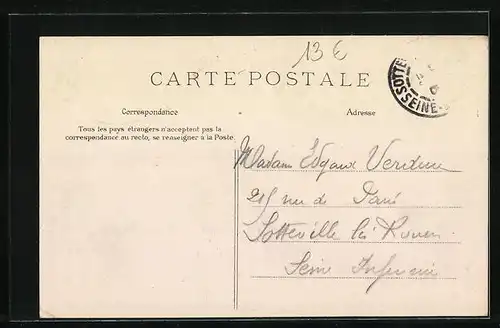 13 €
CARTE POSTALE
Correspondance
Adresse
Tous les pays étrangers n'acceptent pas la
correspondance au recto, se renseigner à la Poste.
Madame Edgard
rue de Paris
Sotteville les Rouen
Seine Inférieure